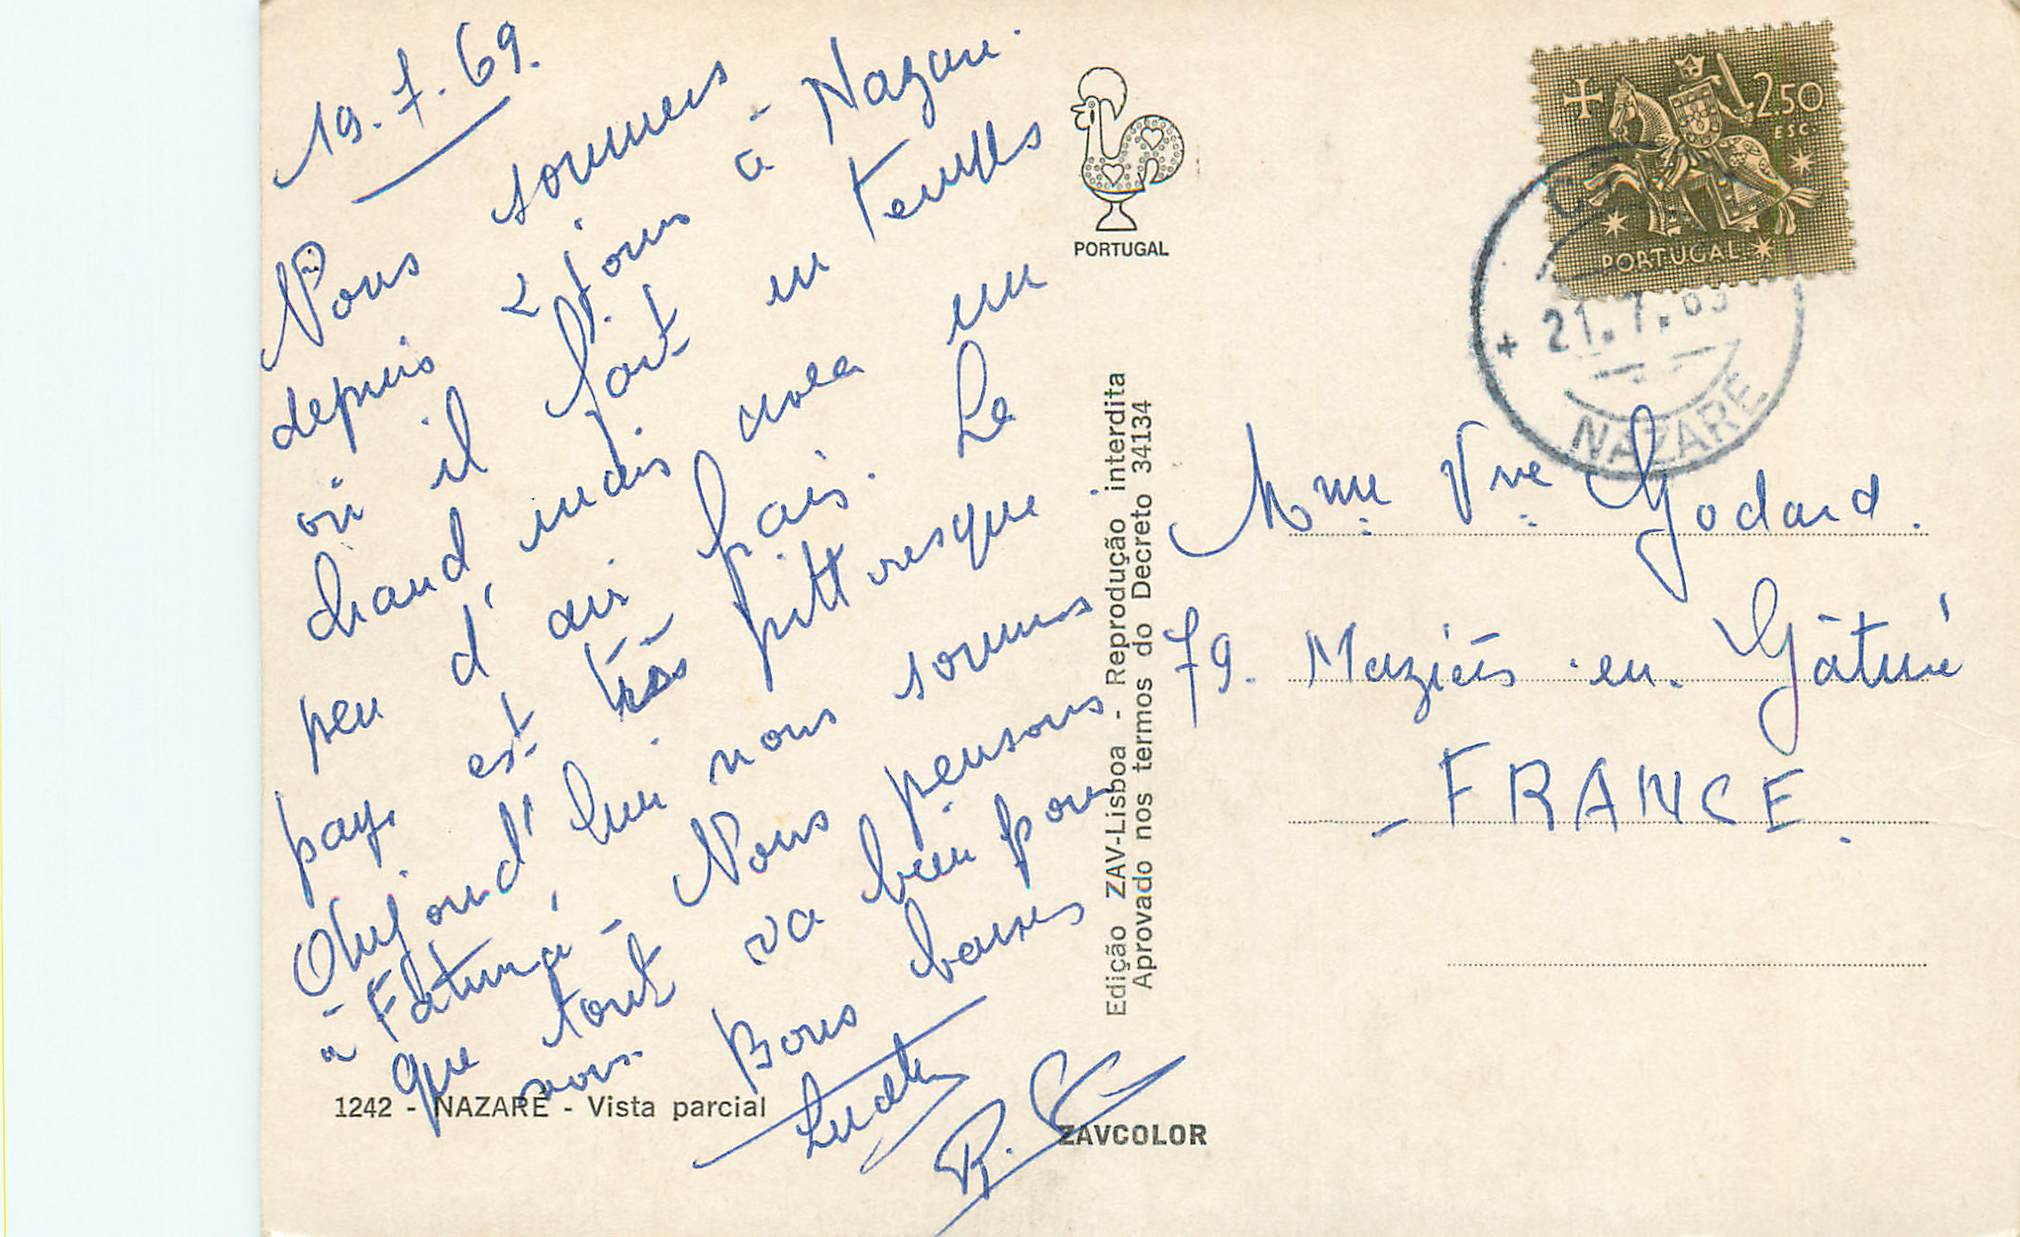 19.7.69.
Nous sommes
depuis 2 jours à Nazare.
où il fait un temps
chaud, mais avec un
peu d'air frais. Le
pays est très pittoresque.
Aujourd'hui nous sommes
à Fatima - Nous pensons
que tout va bien pour
vous. Bons baisers
PORTUGAL
Edição ZAV-Lisboa - Reprodução interdita
Aprovado nos termos do Decreto 34134
1242 - NAZARÉ - Vista parcial
ZAVCOLOR
2$50
ESC.
PORTUGAL
21.7.69
NAZARÉ
Mme Vve Godard.
79. Mazières en Gâtine
- FRANCE.